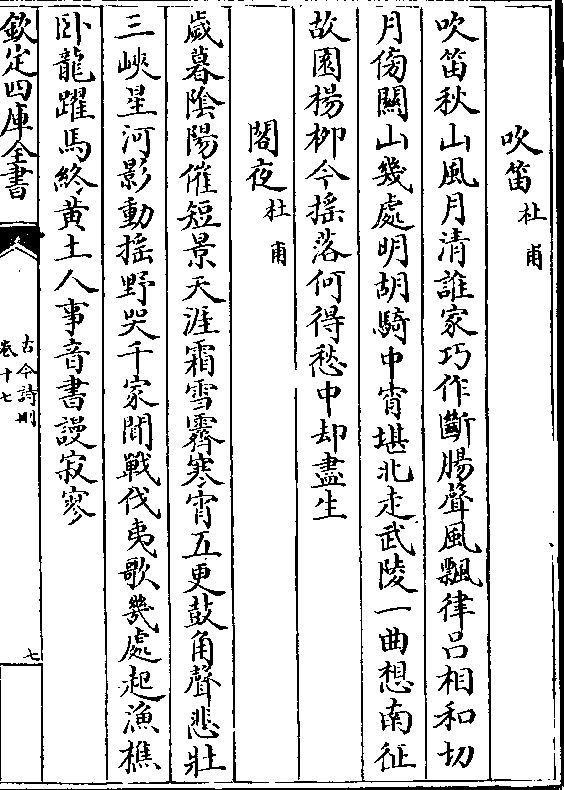 吹笛杜甫
吹笛秋山風月清誰家巧作斷腸聲風飄律呂相和切
月傍關山幾處明胡騎中宵堪北走武陵一曲想南征
故園楊柳今揺落何得愁中却盡生
閣夜杜甫
歲暮陰陽催短景天涯霜雪霽寒宵五更鼓角聲悲壯
三峽星河影動揺野哭千家聞戰伐夷歌幾處起漁樵
卧龍躍馬終黄土人事音書謾寂寥
欽定四庫全書
古今詩刪
卷十七
七